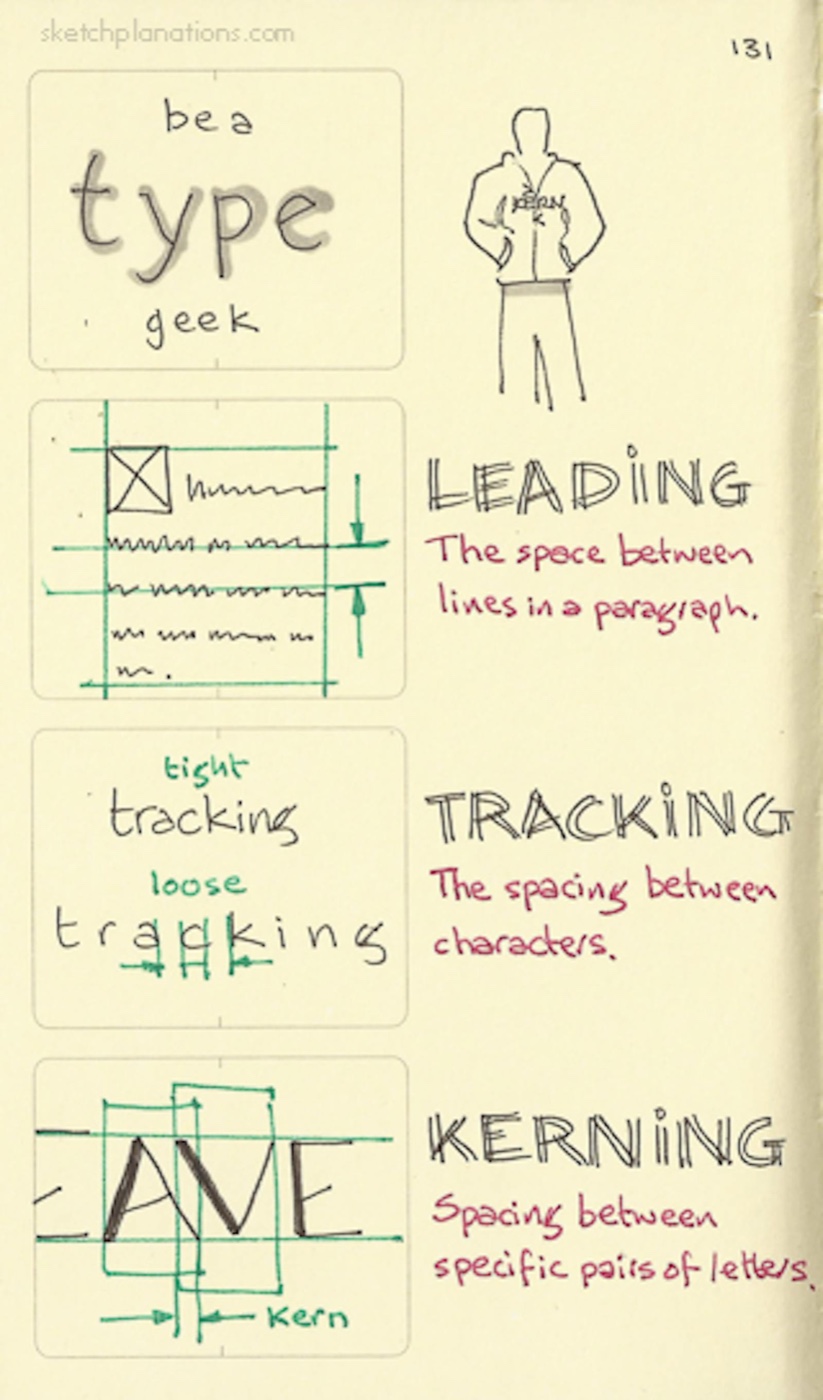 sketchplanations.com
131
be a
type
geek
KERN
K
LEADiNG
The space between
lines in a paragraph.
tight
tracking
loose
tracking
TRACKiNG
The spacing between
characters.
EAVE
Kern
KERNiNG
Spacing between
specific pairs of letters.